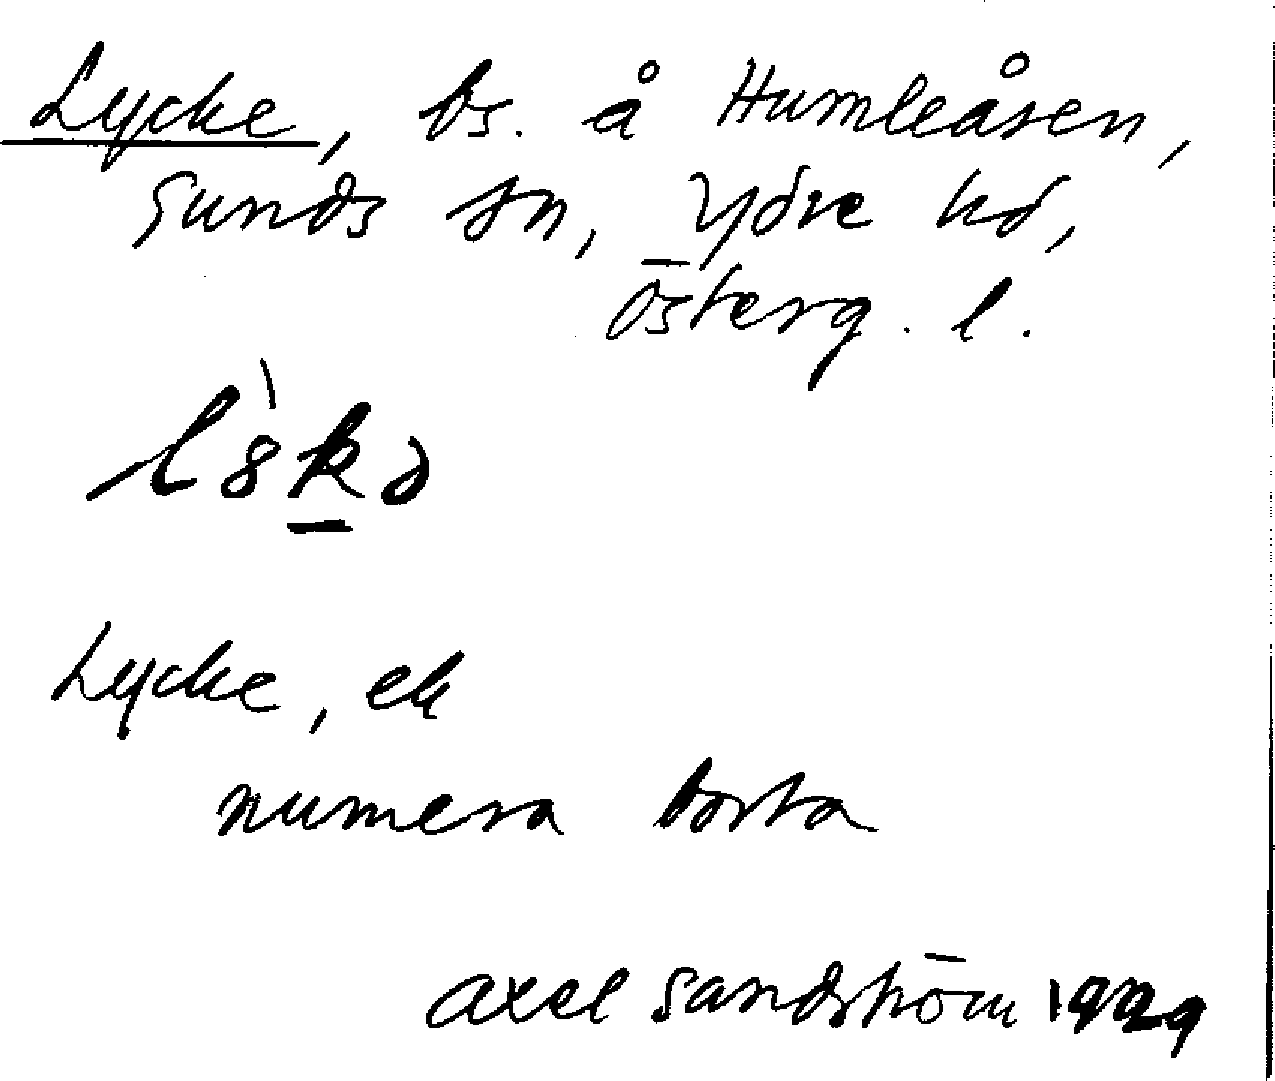 Lycke, bs. å Humleåsen,
Sunds sn, Ydre hd,
Österg. l.
l8̀kə
Lycke, ek
numera borta
Axel Sandström 1929